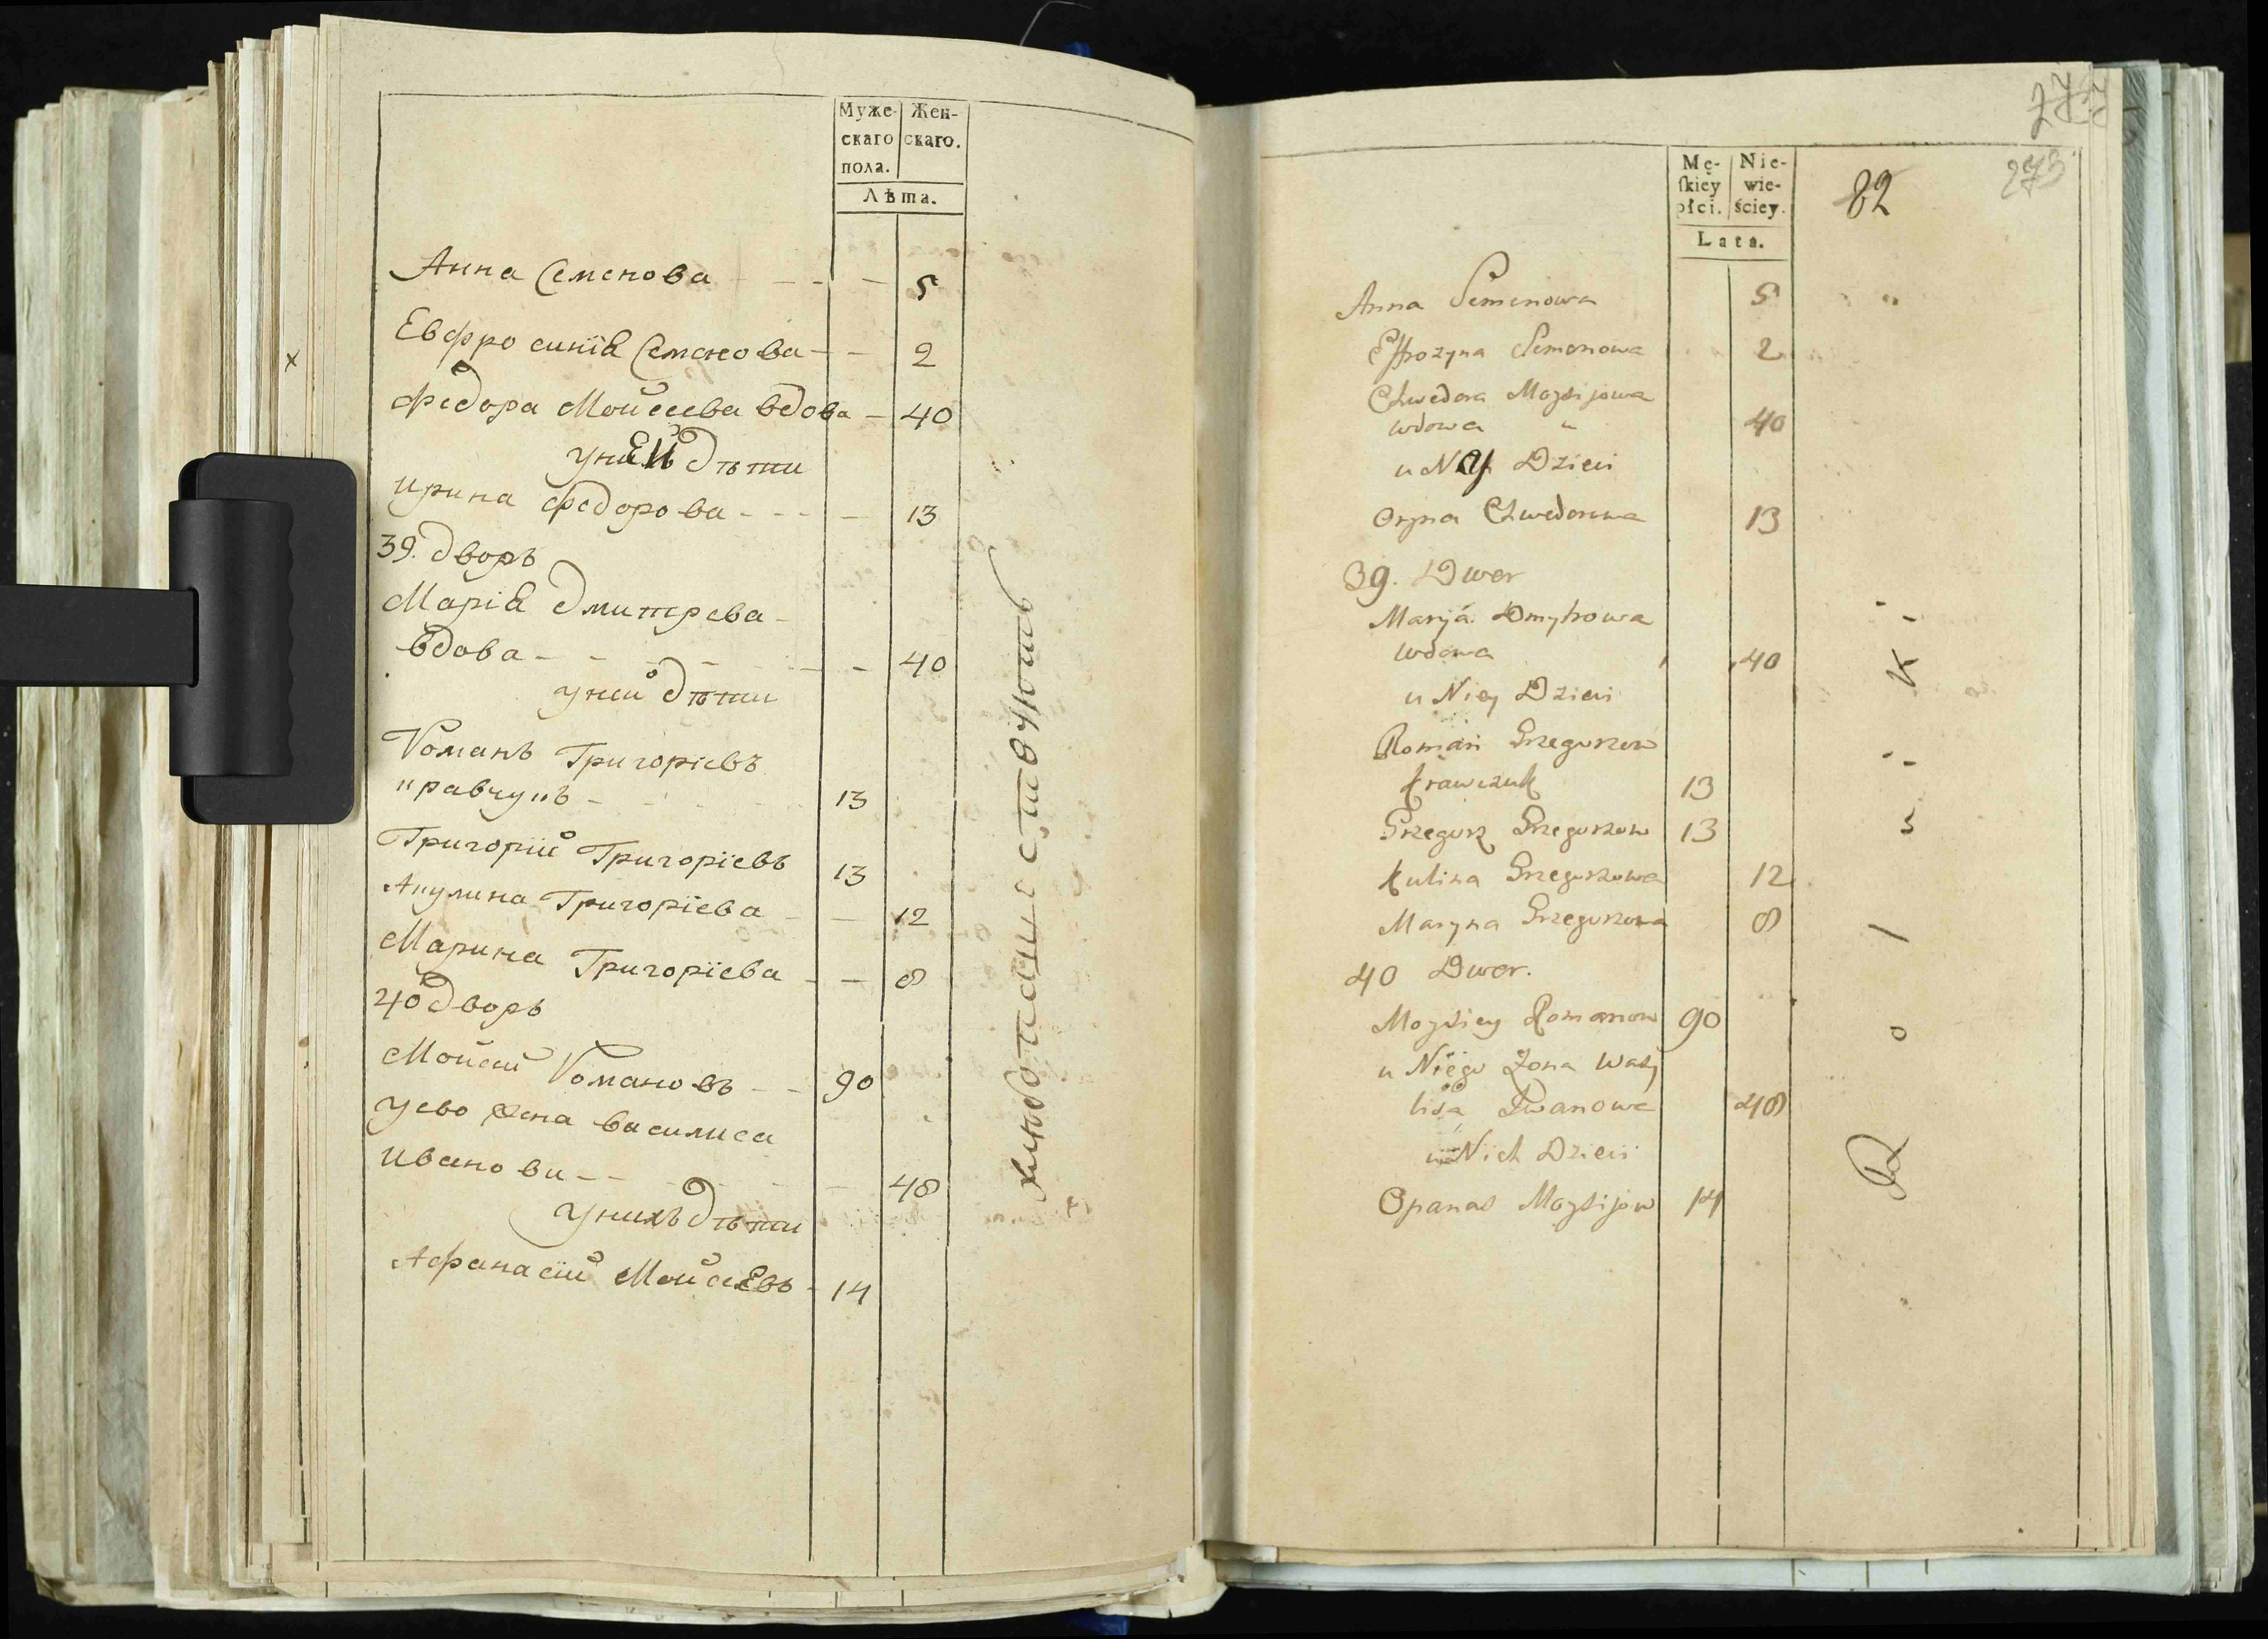 Муже-
скаго
пола.
Жен-
скаго.
Лѣта.
Анна Семенова - - - - 5
Евфросинія Семенова - - 2
Федора Мойсеева вдова - 40
у ней дѣти
Ирина Федорова - - - - 13
39. дворъ
Марія Дмитрева -
вдова - - - - - - 40
у ней дѣти
Романъ Григоріевъ
кравчукъ - - 13
Григорій Григоріевъ 13
Акулина Григоріева - - 12
Марина Григоріева - - 8
40 дворъ
Мойсей Романовъ - - 90
у ево жена Василиса
Иванова - - - - 48
у нихъ дѣти
Афанасій Мойсеевъ - 14
хлѣбопашествуютъ
277
273
82
Mę-
skiey
płci.
Nie-
wie-
ściey.
Lata.
Anna Semenowa 5
Effrozyna Semenowa 2
Chwedora Moysijowa
wdowa 40
u Ney Dzieci
Oryna Chwedorowa 13
39. Dwor
Maryá Dmytrowa
wdowa 40
u Niey Dzieci
Roman Grzegorzow
Krawczuk 13
Grzegorz Grzegorzow 13
Kulina Grzegorzowa 12
Maryna Grzegorzowa 8
40 Dwor.
Moysiey Romanow 90
u Niego Żona Wasy
lisa Iwanowa 48
u Nich Dzieci
Opanas Moysijow 14
R o l n i k i